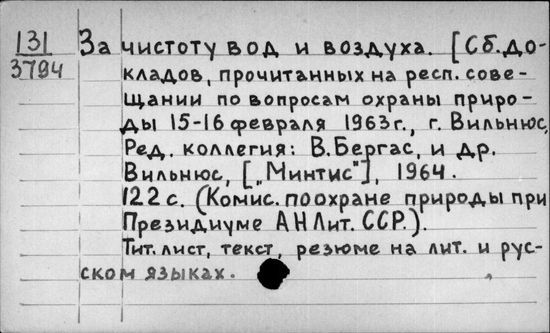 131
3794
За чистоту вод и воздуха. [Сб. до-
кладов, прочитанных на респ. сове-
щании по вопросам охраны приро-
ды 15-16 февраля 1963г., г. Вильнюс,
Ред. коллегия: В. Бергас, и др.
Вильнюс, [„Минтис"], 1964.
122 с. (Комис. по охране природы при
Президиуме АН Лит. ССР.).
Тит. лист, текст, резюме на лит. и рус-
ском языках.